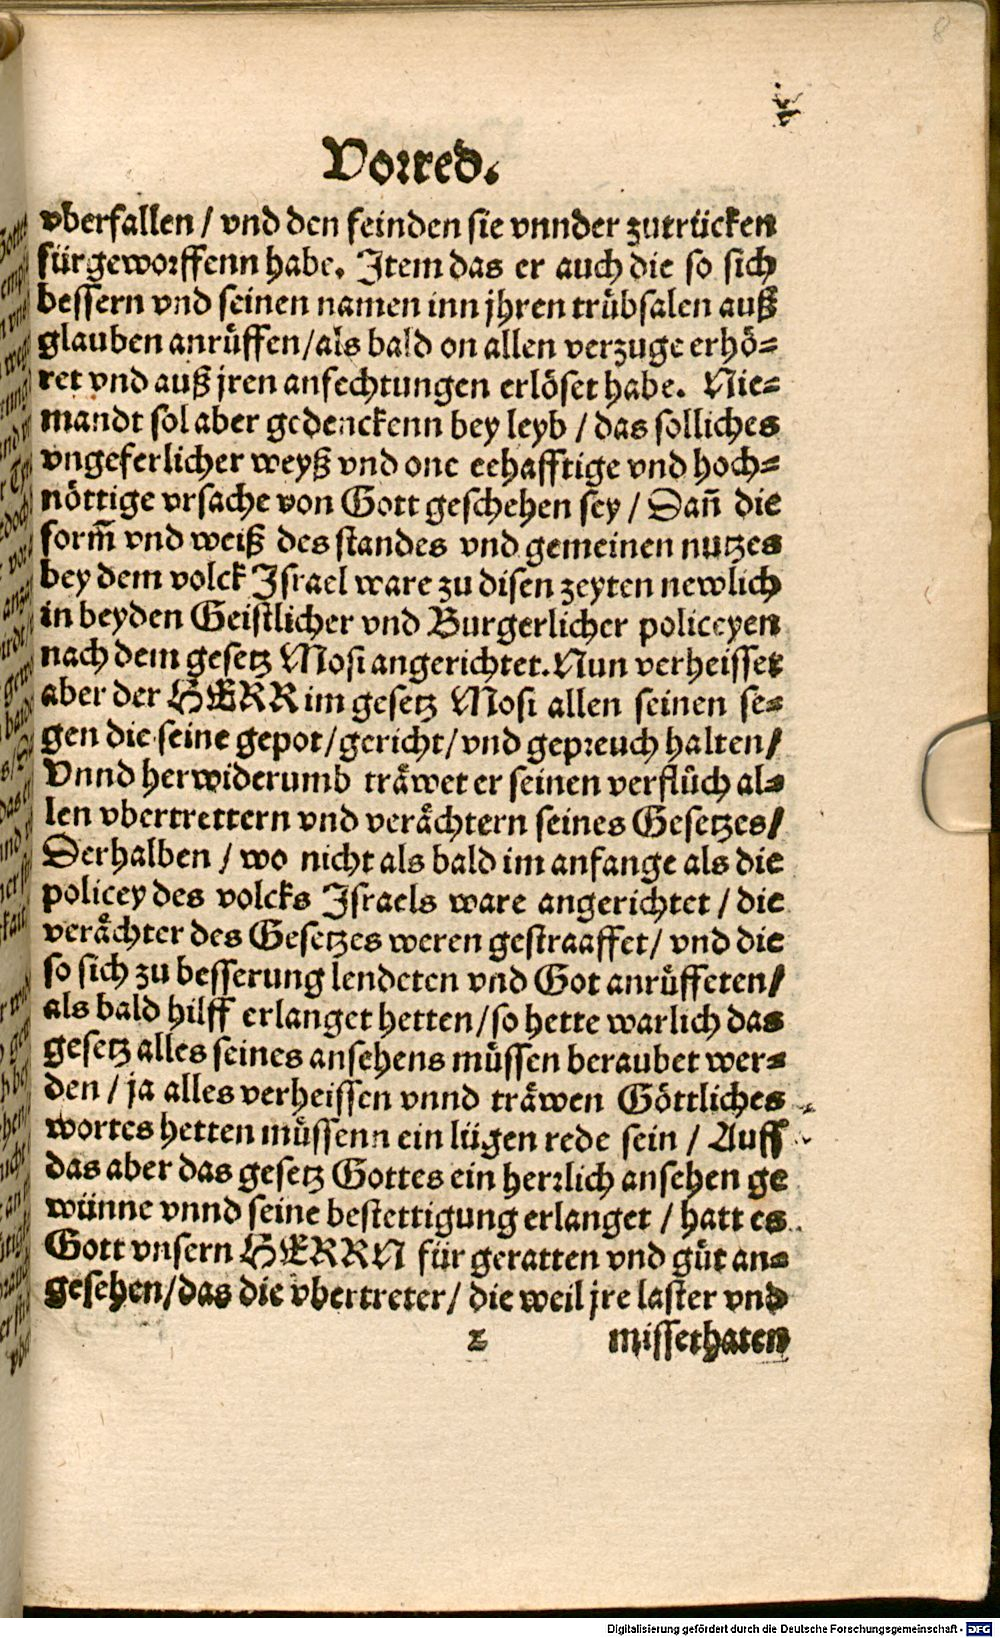 Vorred.
vberfallen / vnd den feinden sie vnnder zutrücken
fürgeworffenn habe. Item das er auch die so sich
bessern vnd seinen namen inn jhren trübsalen auß
glauben anrüffen/als bald on allen verzuge erhö=
ret vnd auß jren anfechtungen erlöset habe. Nie=
mandt sol aber gedenckenn bey leyb / das solliches
vngeferlicher weyß vnd one eehafftige vnd hoch=
nöttige vrsache von Gott geschehen sey / Dañ die
form̃ vnd weiß des standes vnd gemeinen nutzes
bey dem volck Israel ware zu disen zeyten newlich
in beyden Geistlicher vnd Burgerlicher policeyen
nach dem gesetz Mosi angerichtet. Nun verheisset
aber der HERR im gesetz Mosi allen seinen se=
gen die seine gepot/gericht/vnd gepreuch halten/
Vnnd herwiderumb träwet er seinen verflüch al=
len vbertrettern vnd verächtern seines Gesetzes/
Derhalben / wo nicht als bald im anfange als die
policey des volcks Israels ware angerichtet / die
verächter des Gesetzes weren gestraaffet/ vnd die
so sich zu besserung lendeten vnd Got anrüffeten/
als bald hilff erlanget hetten/so hette warlich das
gesetz alles seines ansehens müssen beraubet wer=
den / ja alles verheissen vnnd träwen Göttliches
wortes hetten müssenn ein lügen rede sein / Auff
das aber das gesetz Gottes ein herrlich ansehen ge
wünne vnnd seine bestettigung erlanget / hatt es
Gott vnsern HERRN für geratten vnd güt an=
gesehen/das die vbertreter/ die weil jre laster vnd
missethaten
8
Digitalisierung gefördert durch die Deutsche Forschungsgemeinschaft - DFG